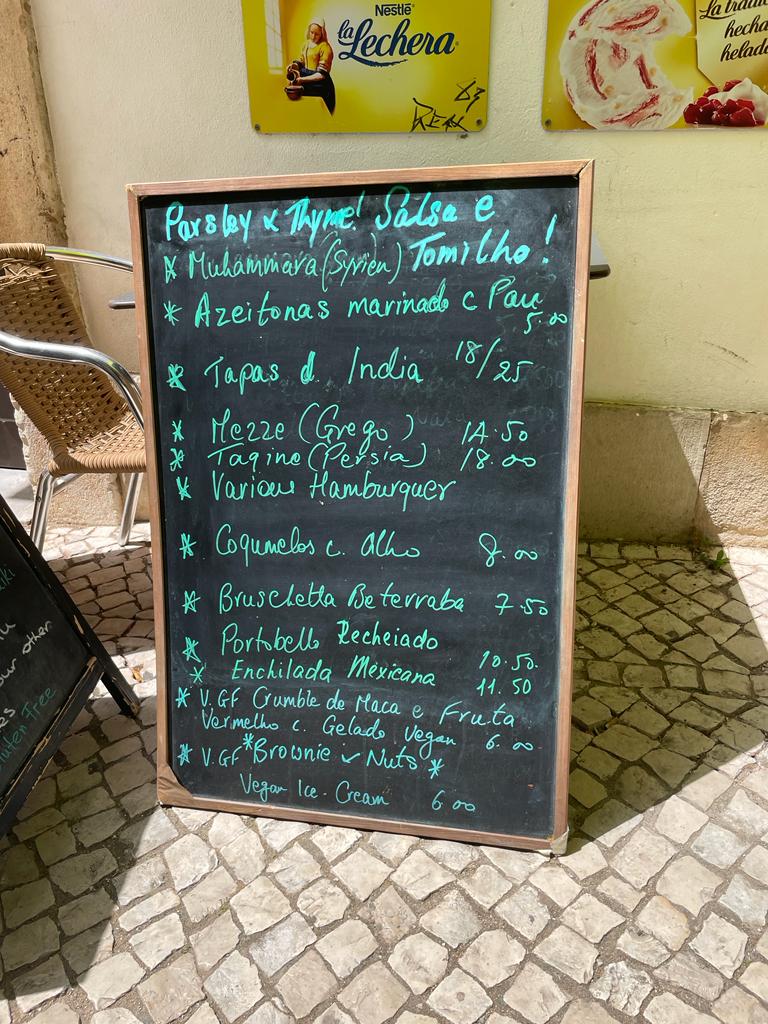 Nestlé
la
Lechera
La tradi
hecha
helado
REAK 83
Parsley & Thyme! Salsa e
Tomilho!
* Muhammara (Syrien)
* Azeitonas marinado c Pau
5.00
* Tapas d. India 18/25
* Mezze (Grego) 14.50
* Tagine (Persia) 18.00
* Various Hamburguer
* Coqumelos c. Alho 8.00
* Bruschetta Beterraba 7.50
* Portobello Recheiado
10.50.
* Enchilada Mexicana 11.50
* V.GF Crumble de Maca e Fruta
Vermelho c. Gelado vegan 6.00
* V.GF *Brownie ✓ Nuts *
Vegan Ice-Cream 6.00
our other
Gluten Free